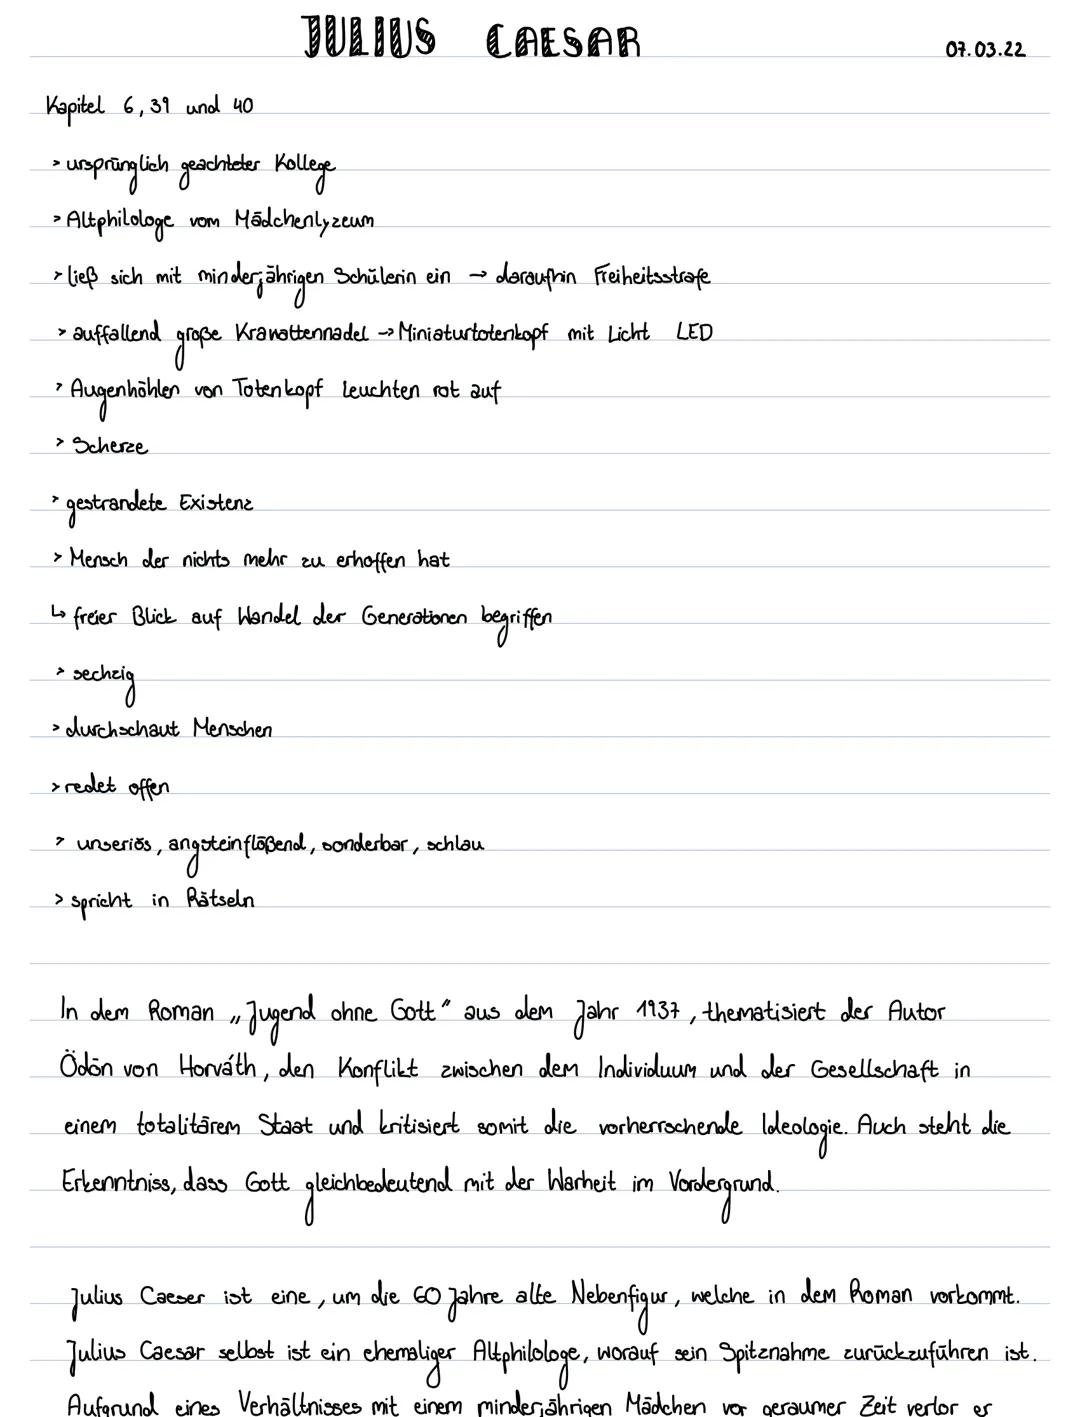 JULIUS CAESAR 07.03.22
Kapitel 6, 39 und 40
> ursprünglich geachteter Kollege
> Altphilologe vom Mädchenlyzeum
> ließ sich mit minderjährigen Schülerin ein → daraufhin Freiheitsstrafe
> auffallend große Krawattennadel → Miniaturtotenkopf mit Licht LED
> Augenhöhlen von Totenkopf leuchten rot auf
> Scherze
> gestrandete Existenz
> Mensch der nichts mehr zu erhoffen hat
↳ freier Blick auf Wandel der Generationen begriffen
> sechzig
> durchschaut Menschen
> redet offen
> unseriös, angsteinflößend, sonderbar, schlau
> spricht in Rätseln
In dem Roman „Jugend ohne Gott" aus dem Jahr 1937, thematisiert der Autor
Ödön von Horváth, den Konflikt zwischen dem Individuum und der Gesellschaft in
einem totalitärem Staat und kritisiert somit die vorherrschende Ideologie. Auch steht die
Erkenntniss, dass Gott gleichbedeutend mit der Warheit im Vordergrund.
Julius Caeser ist eine, um die 60 Jahre alte Nebenfigur, welche in dem Roman vorkommt.
Julius Caesar selbst ist ein ehemaliger Altphilologe, worauf sein Spitzname zurückzuführen ist.
Aufgrund eines Verhältnisses mit einem minderjährigen Mädchen vor geraumer Zeit verlor er